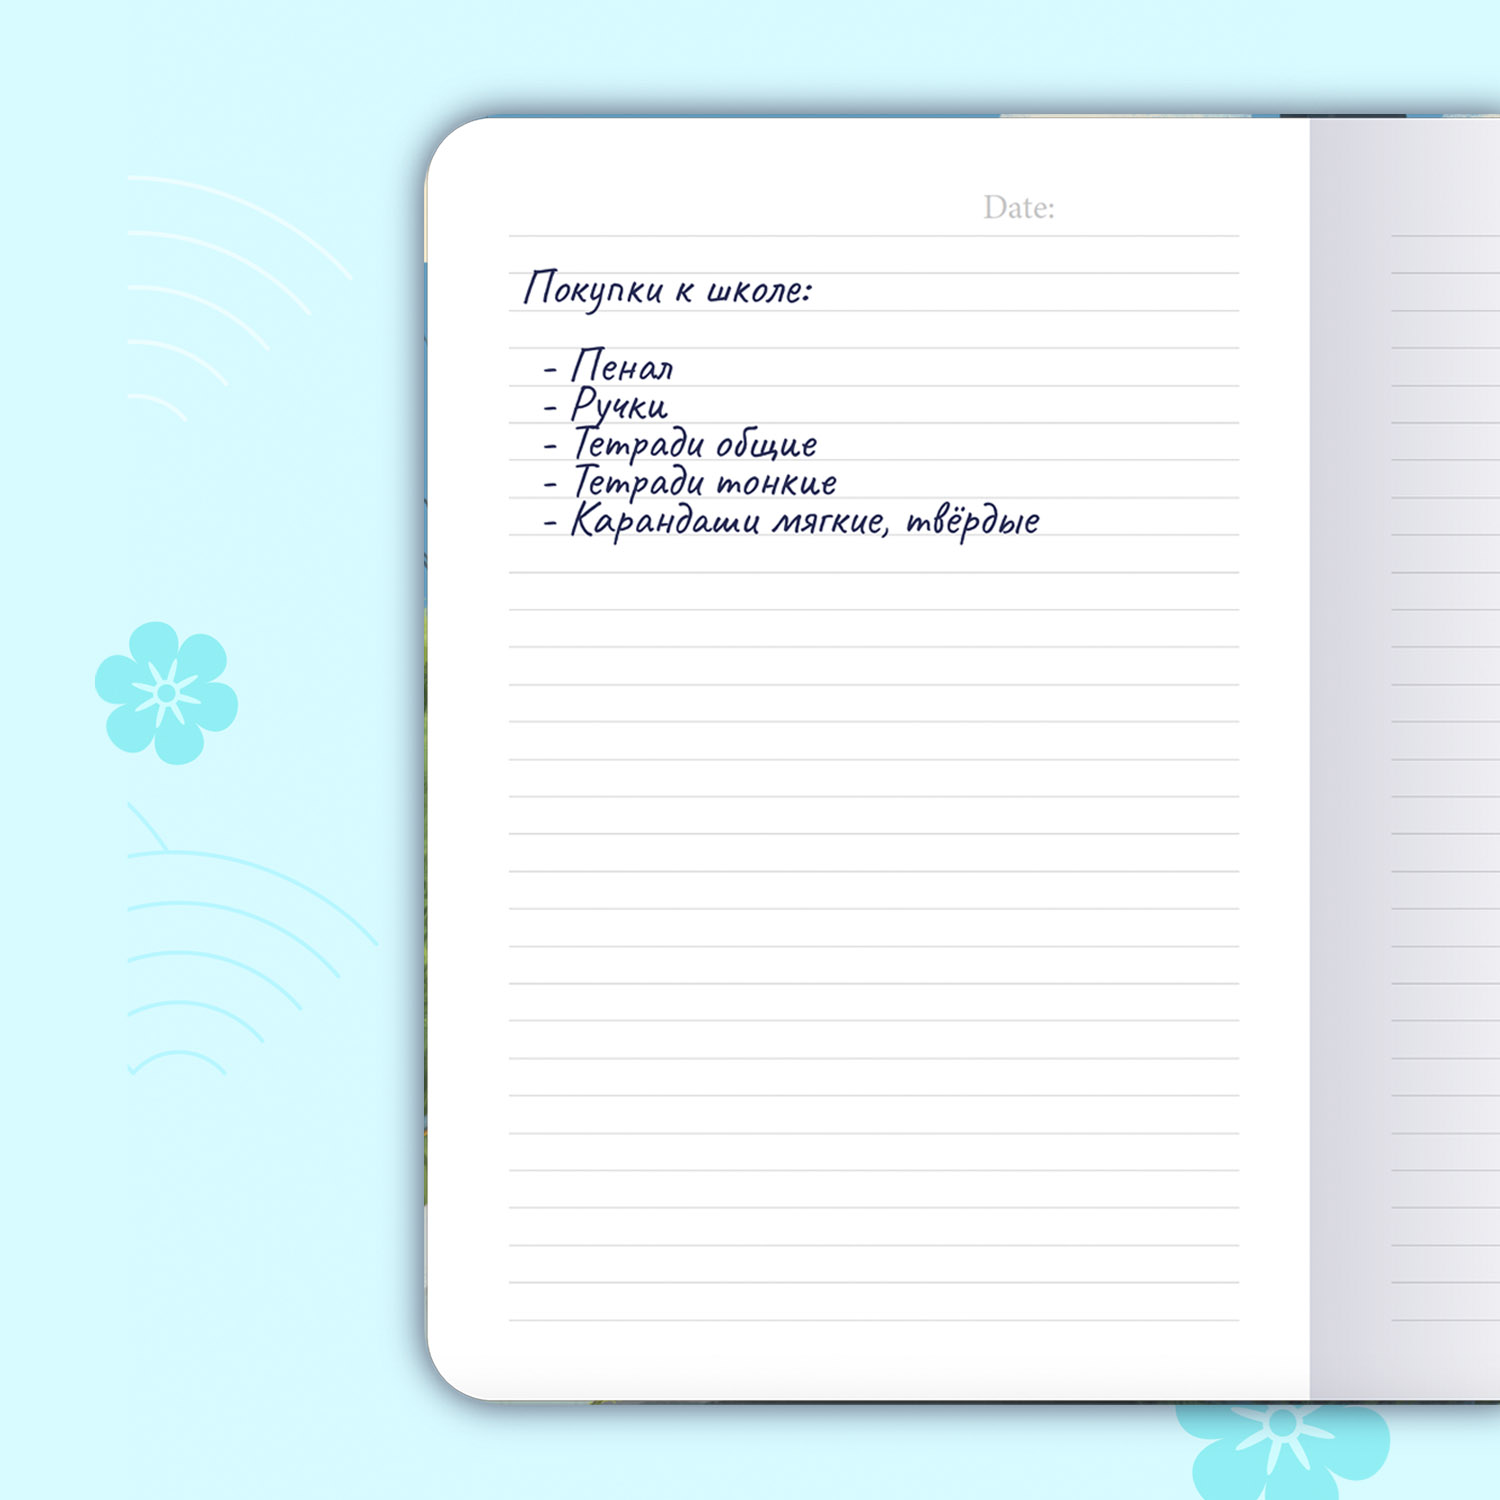 Date:
Покупки к школе:
- Пенал
- Ручки
- Тетради общие
- Тетради тонкие
- Карандаши мягкие, твёрдые